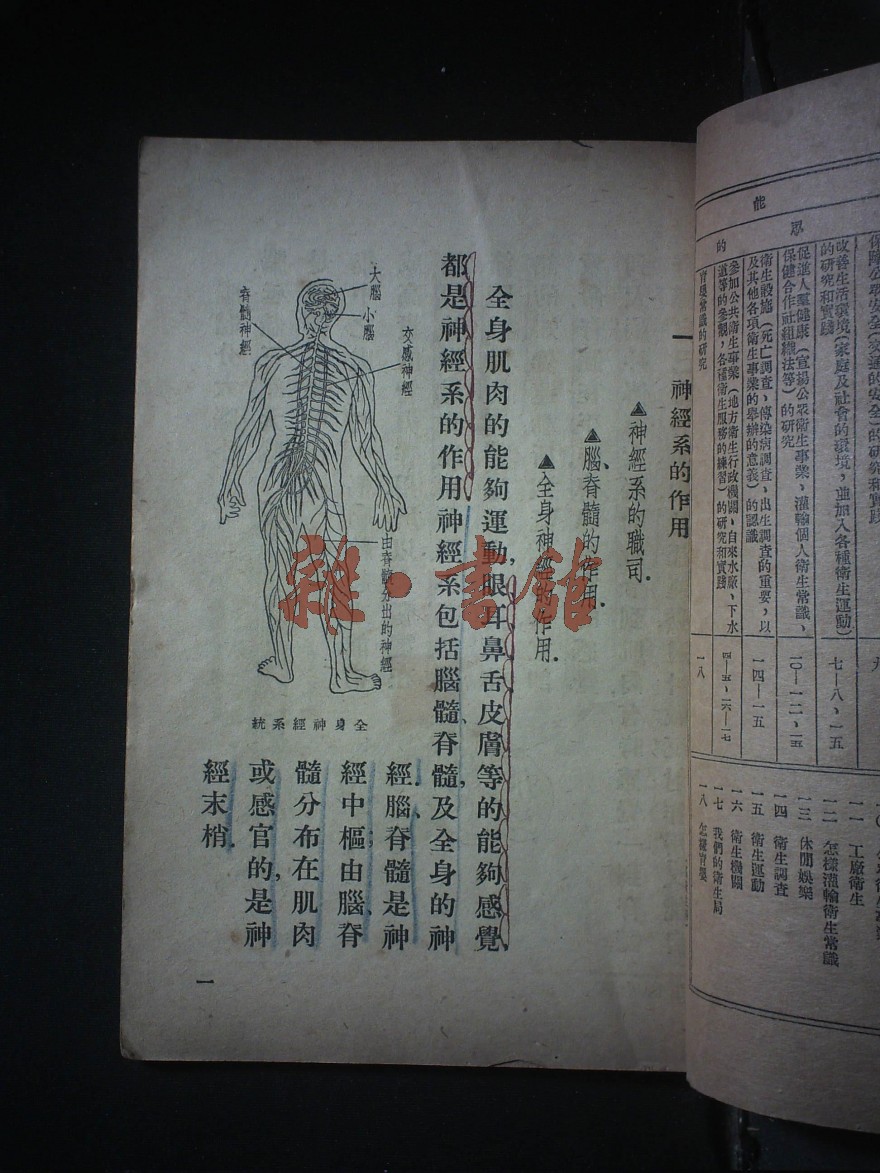 能
眾
的
改善生活環境(家庭及社會的環境,並加入各種衛生運動)
的研究和實踐
七—八、一五
促進人羣健康(宣揚公眾衛生事業,灌輸個人衛生常識,
保健合作社組織法等)的研究
一〇—一二、一五
衛生設施(死亡調查,傳染病調查,出生調查的重要,以
及其他各項衛生事業的舉辦的意義)的認識
一四—一五
參加公共衛生事業(地方衛生行政機關,自來水廠,下水
道等的參觀,各種衛生服務的練習)的研究和實踐
四—五、一六—一七
育嬰常識的研究
一八
一一 工廠衛生
一二 怎樣灌輸衛生常識
一三 休閒娛樂
一四 衛生調查
一五 衛生運動
一六 衛生機關
一七 我們的衛生局
一八 怎樣育嬰
一 神經系的作用
▲神經系的職司.
▲腦、脊髓的作用.
▲全身神經的作用.
全身肌肉的能夠運動,眼耳鼻舌皮膚等的能夠感覺,
都是神經系的作用.神經系包括腦髓、脊髓,及全身的神
經.腦、脊髓是神
經中樞;由腦、脊
髓分布在肌肉
或感官的,是神
經末梢.
大腦
小腦
交感神經
脊髓神經
由脊髓分出的神經
全身神經系統
一
雜·書館